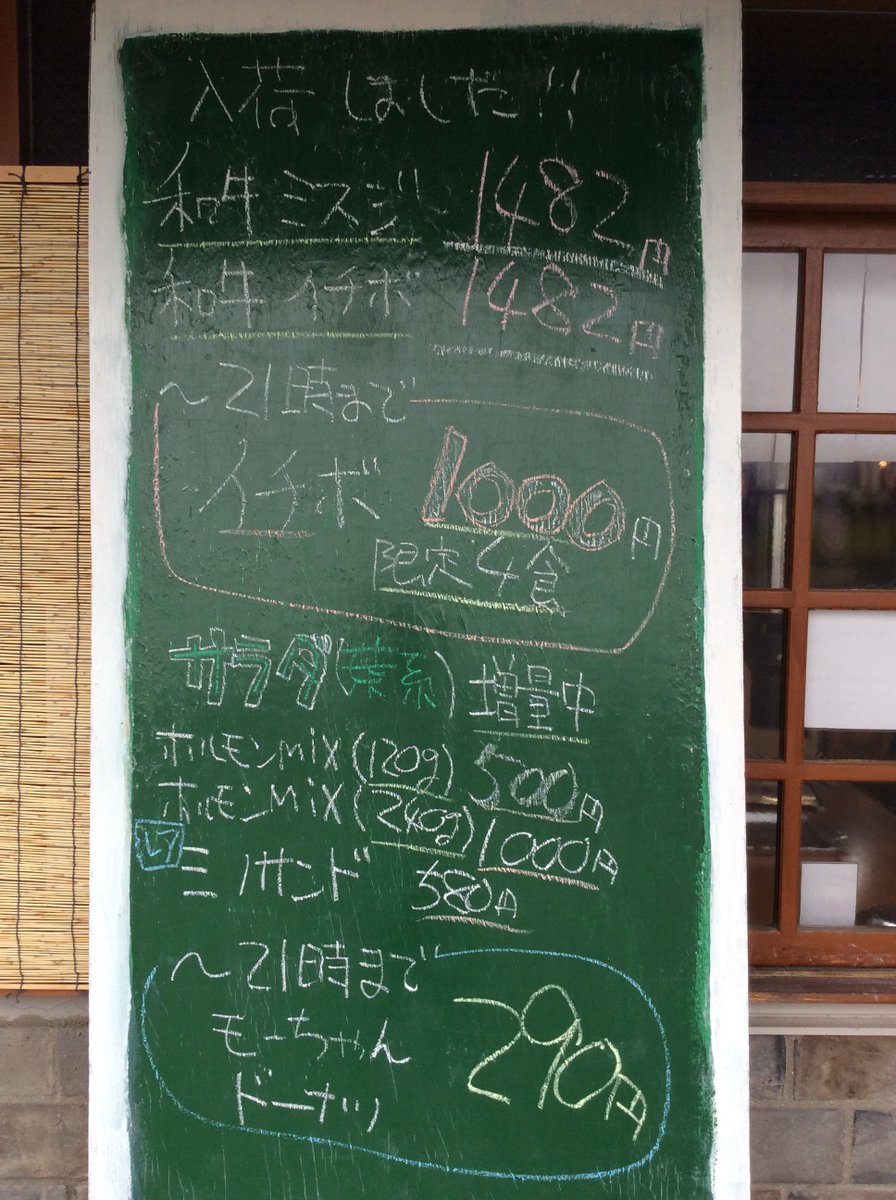 入荷しました!!
和牛ミスジ 1482円
和牛イチボ 1482円
〜21時まで
イチボ 1000円
限定4食
サラダ(葉系)増量中
ホルモンmix(120g)500円
ホルモンmix(240g)1000円
レア ミノサンド 580円
〜21時まで
モーちゃん
ドーナツ 290円